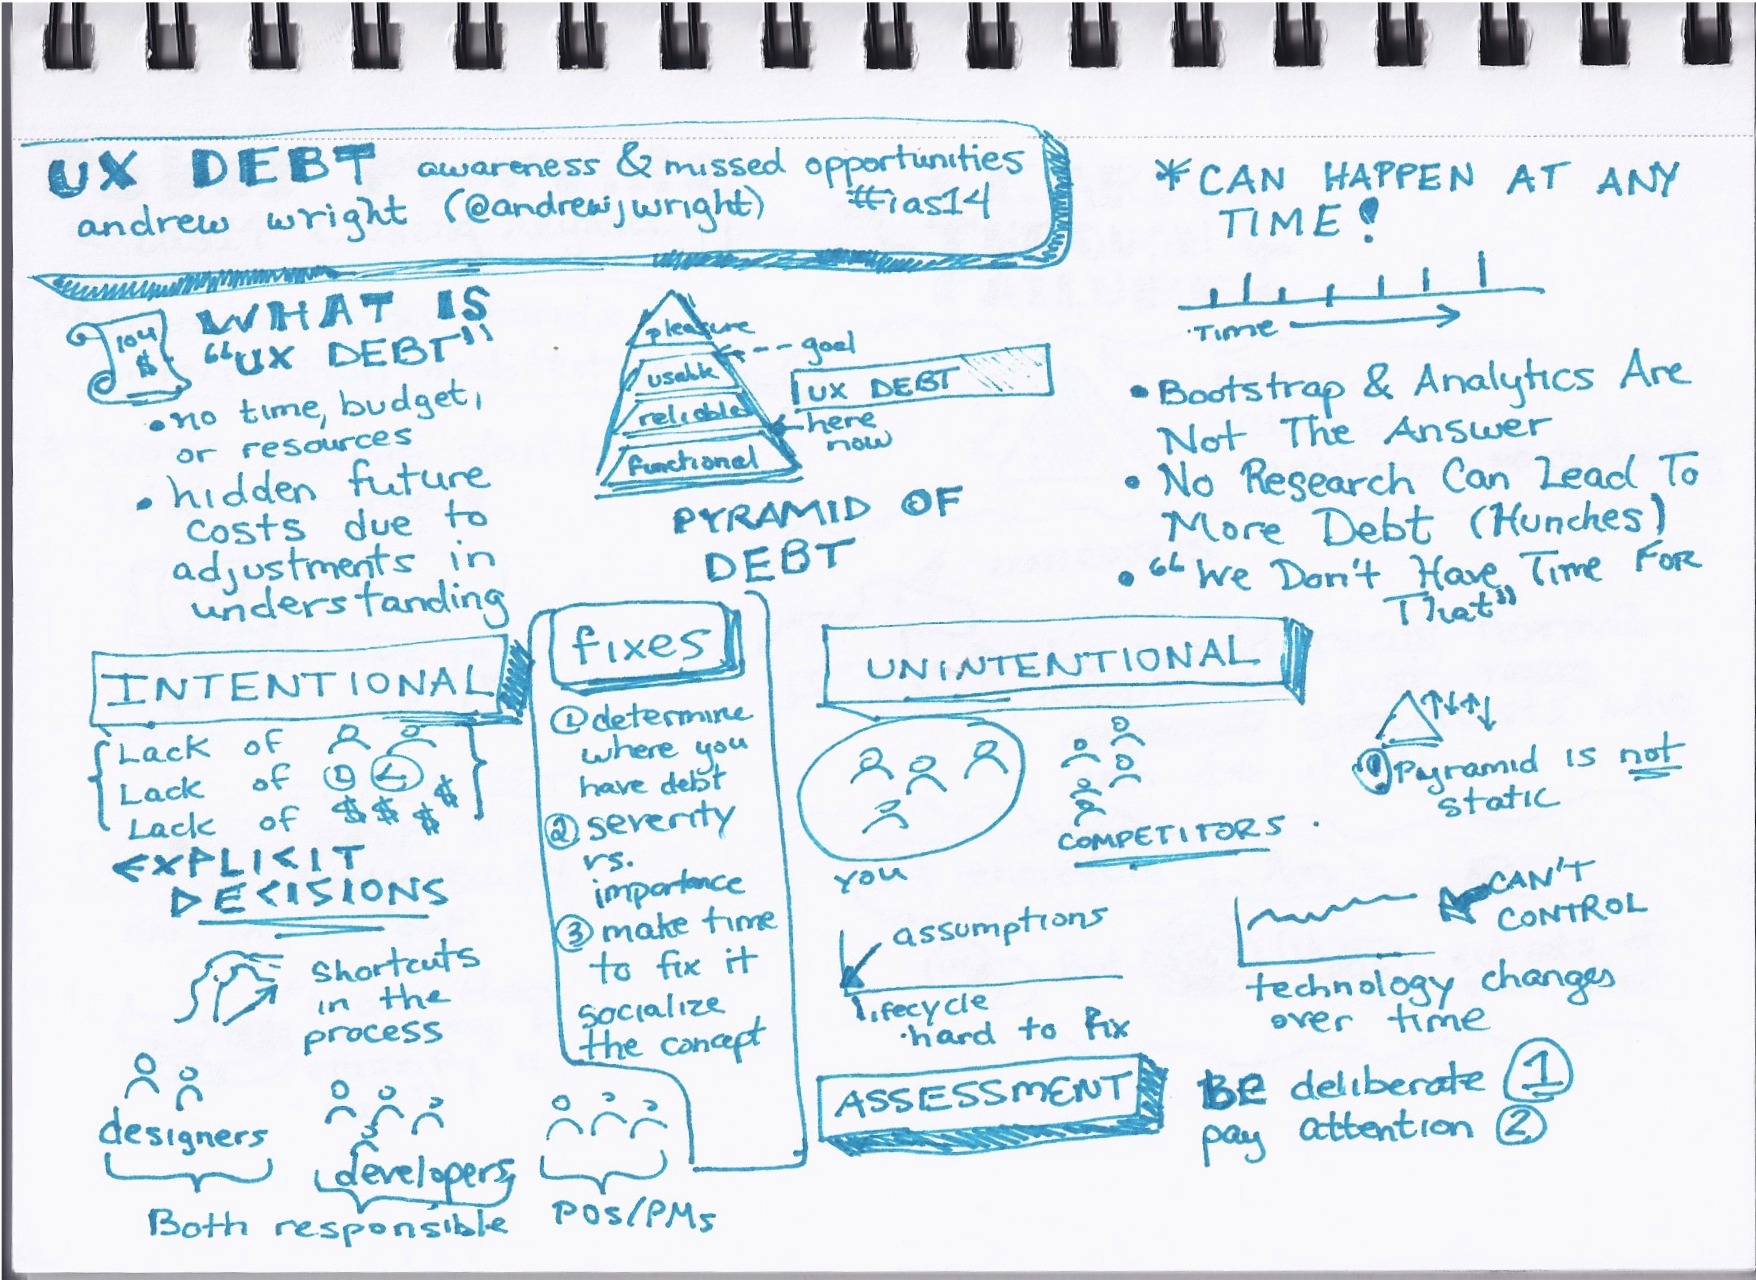 UX DEBT awareness & missed opportunities
andrew wright (@andrewjwright) #ias14
* CAN HAPPEN AT ANY
TIME!
Time
IOU
$
WHAT IS
"UX DEBT"
• no time, budget,
or resources
• hidden future
costs due to
adjustments in
understanding
pleasure
usable
reliable
functional
goal
UX DEBT
here
now
PYRAMID OF
DEBT
• Bootstrap & Analytics Are
Not The Answer
• No Research Can Lead To
More Debt (Hunches)
• "We Don't Have Time For
That"
INTENTIONAL
Lack of
Lack of
Lack of $ $ $ $
EXPLICIT
DECISIONS
shortcuts
in the
process
designers
developers
Both responsible
POs/PMs
fixes
① determine
where you
have debt
② severity
vs.
importance
③ make time
to fix it
socialize
the concept
UNINTENTIONAL
you
COMPETITORS
Pyramid is not
static
assumptions
lifecycle
• hard to fix
CAN'T
CONTROL
technology changes
over time
ASSESSMENT
BE deliberate 1
pay attention 2